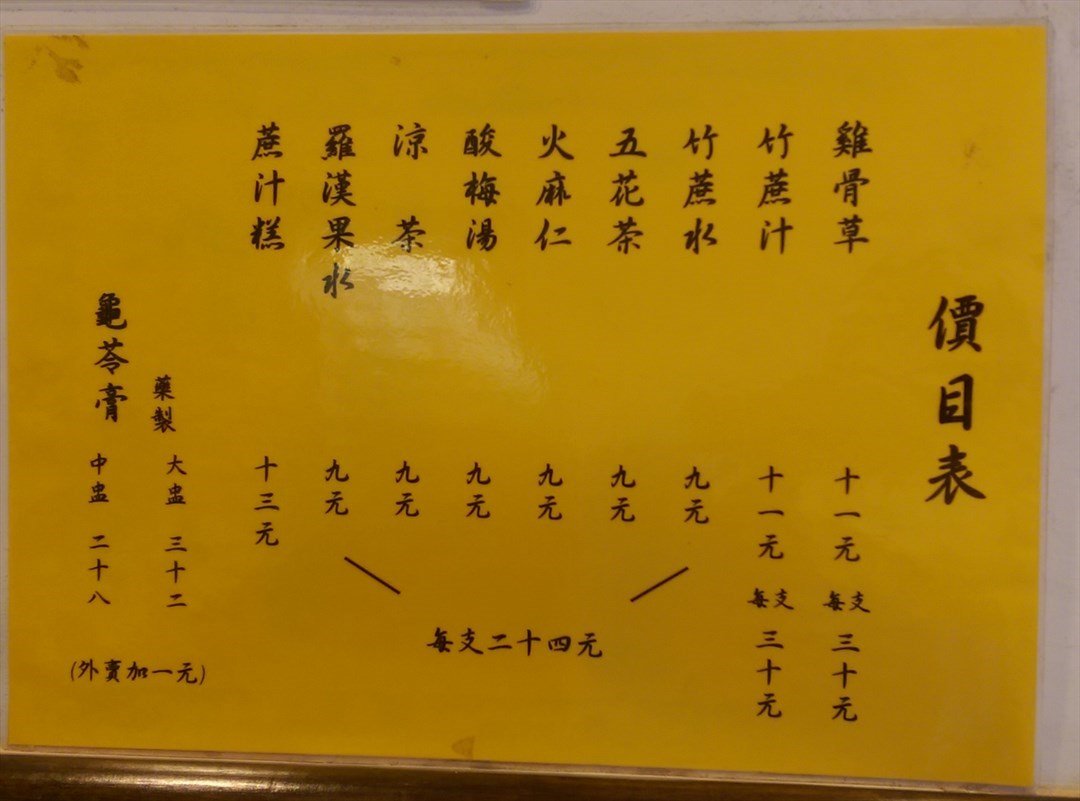 價目表
雞骨草 十一元 每支 三十元
竹蔗汁 十一元 每支 三十元
竹蔗水 九元
五花茶 九元
火麻仁 九元
酸梅湯 九元
涼茶 九元
羅漢果水 九元
每支二十四元
蔗汁糕 十三元
藥製 大盅 三十二
龜苓膏 中盅 二十八
(外賣加一元)